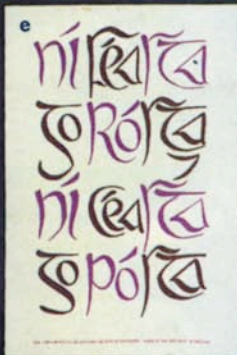 e
ní féasta
go Rósta,
ní céasta
go pósta